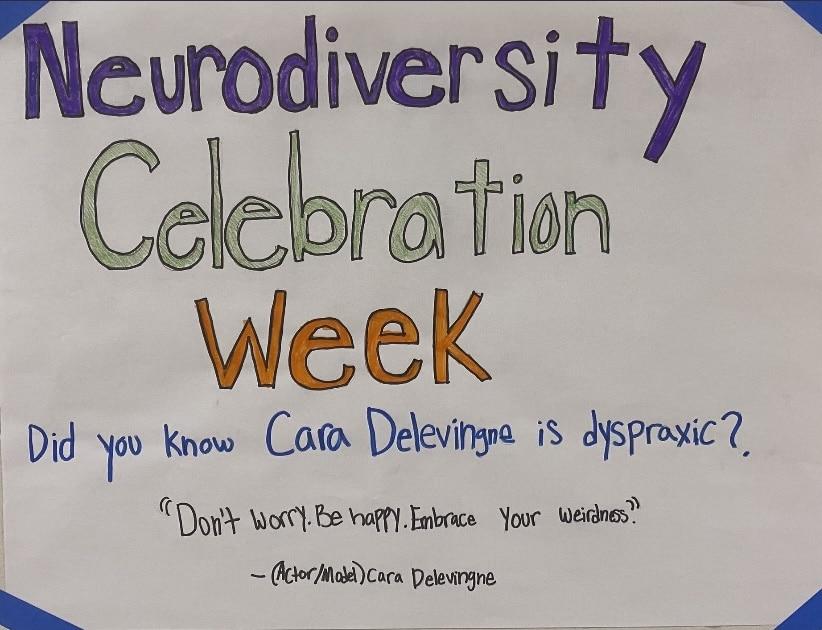 Neurodiversity
Celebration
Week
Did you know Cara Delevingne is dyspraxic?
"Don't worry. Be happy. Embrace your weirdness."
- (Actor/Model) Cara Delevingne